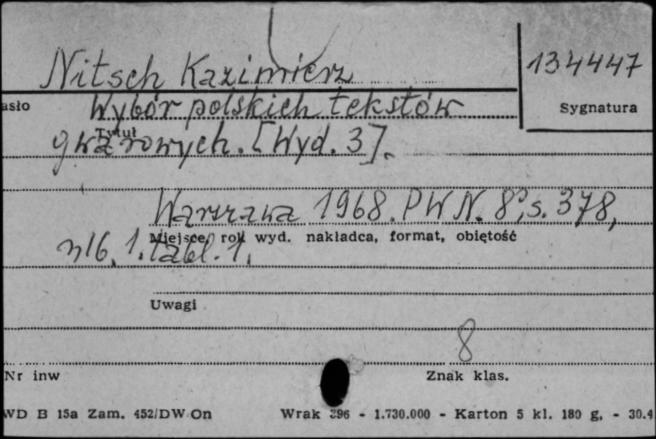 Nitsch Kazimierz
134447
asło
Wybór polskich tekstów
Sygnatura
Tytuł
gwarowych. [Wyd. 3].
Warszawa 1968. PWN. 8°, s. 378,
Miejsce, rok wyd. nakładca, format, objętość
nlb. 1. tabl. 1.
Uwagi
8
Nr inw
Znak klas.
WD B 15a Zam. 452/DW On
Wrak 396 - 1.730.000 - Karton 5 kl. 180 g, - 30.4